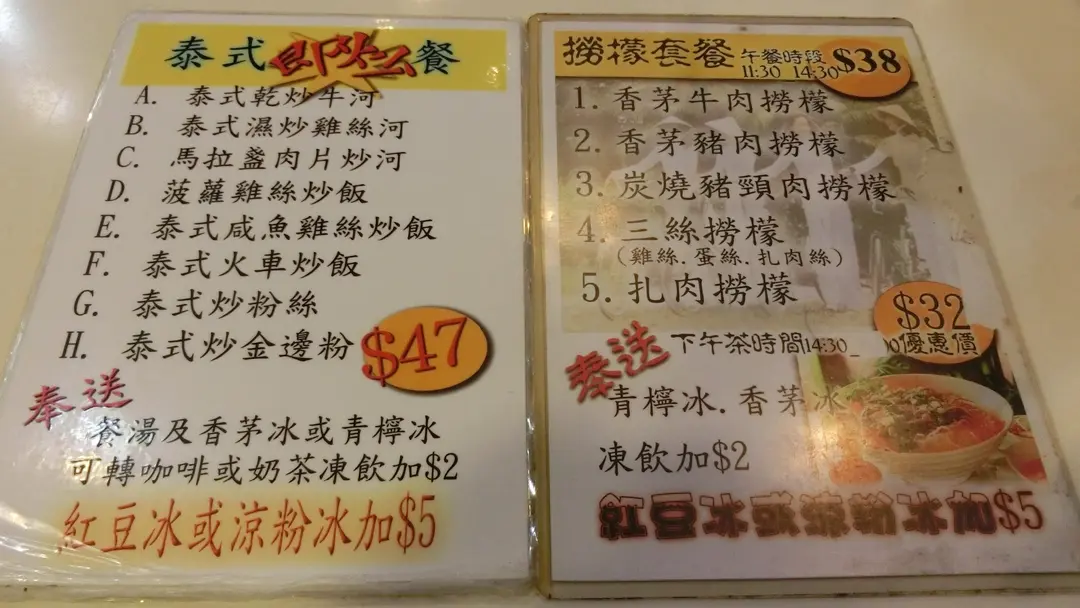 泰式即炒餐
A. 泰式乾炒牛河
B. 泰式濕炒雞絲河
C. 馬拉盞肉片炒河
D. 菠蘿雞絲炒飯
E. 泰式咸魚雞絲炒飯
F. 泰式火車炒飯
G. 泰式炒粉絲
H. 泰式炒金邊粉
$47
奉送
餐湯及香茅冰或青檸冰
可轉咖啡或奶茶凍飲加$2
紅豆冰或涼粉冰加$5
撈檬套餐 午餐時段 $38
11:30 14:30
1. 香茅牛肉撈檬
2. 香茅豬肉撈檬
3. 炭燒豬頸肉撈檬
4. 三絲撈檬
(雞絲.蛋絲.扎肉絲)
5. 扎肉撈檬
$32
下午茶時間14:30 優惠價
奉送
青檸冰.香茅冰
凍飲加$2
紅豆冰或涼粉冰加$5